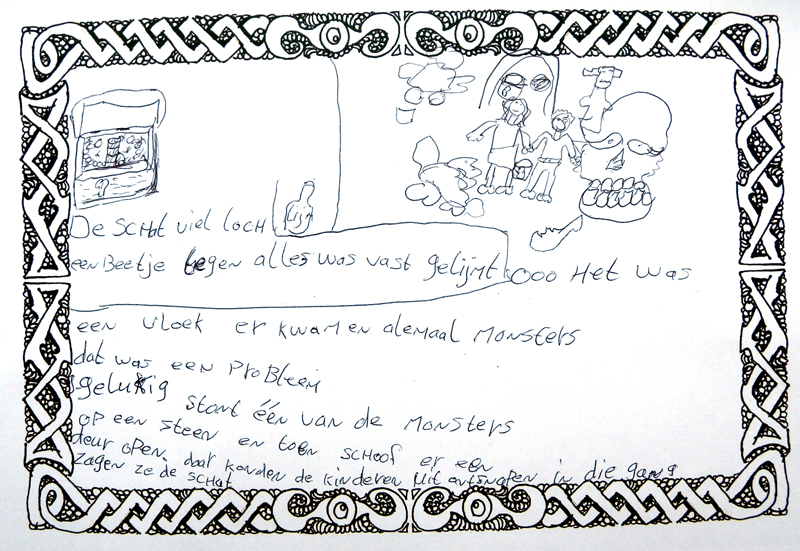 De SCHat viel toCH
een Beetje tegen alles was vast gelijmt ooo Het was
een vloek er kwamen alemaal Monsters
dat was een ProBleem
gelukkig stont één van de Monsters
op een steen en toen schoof er een
deur open. daar konden de kinderen uit ontsnapen in die gang
zagen ze de schat
lijm